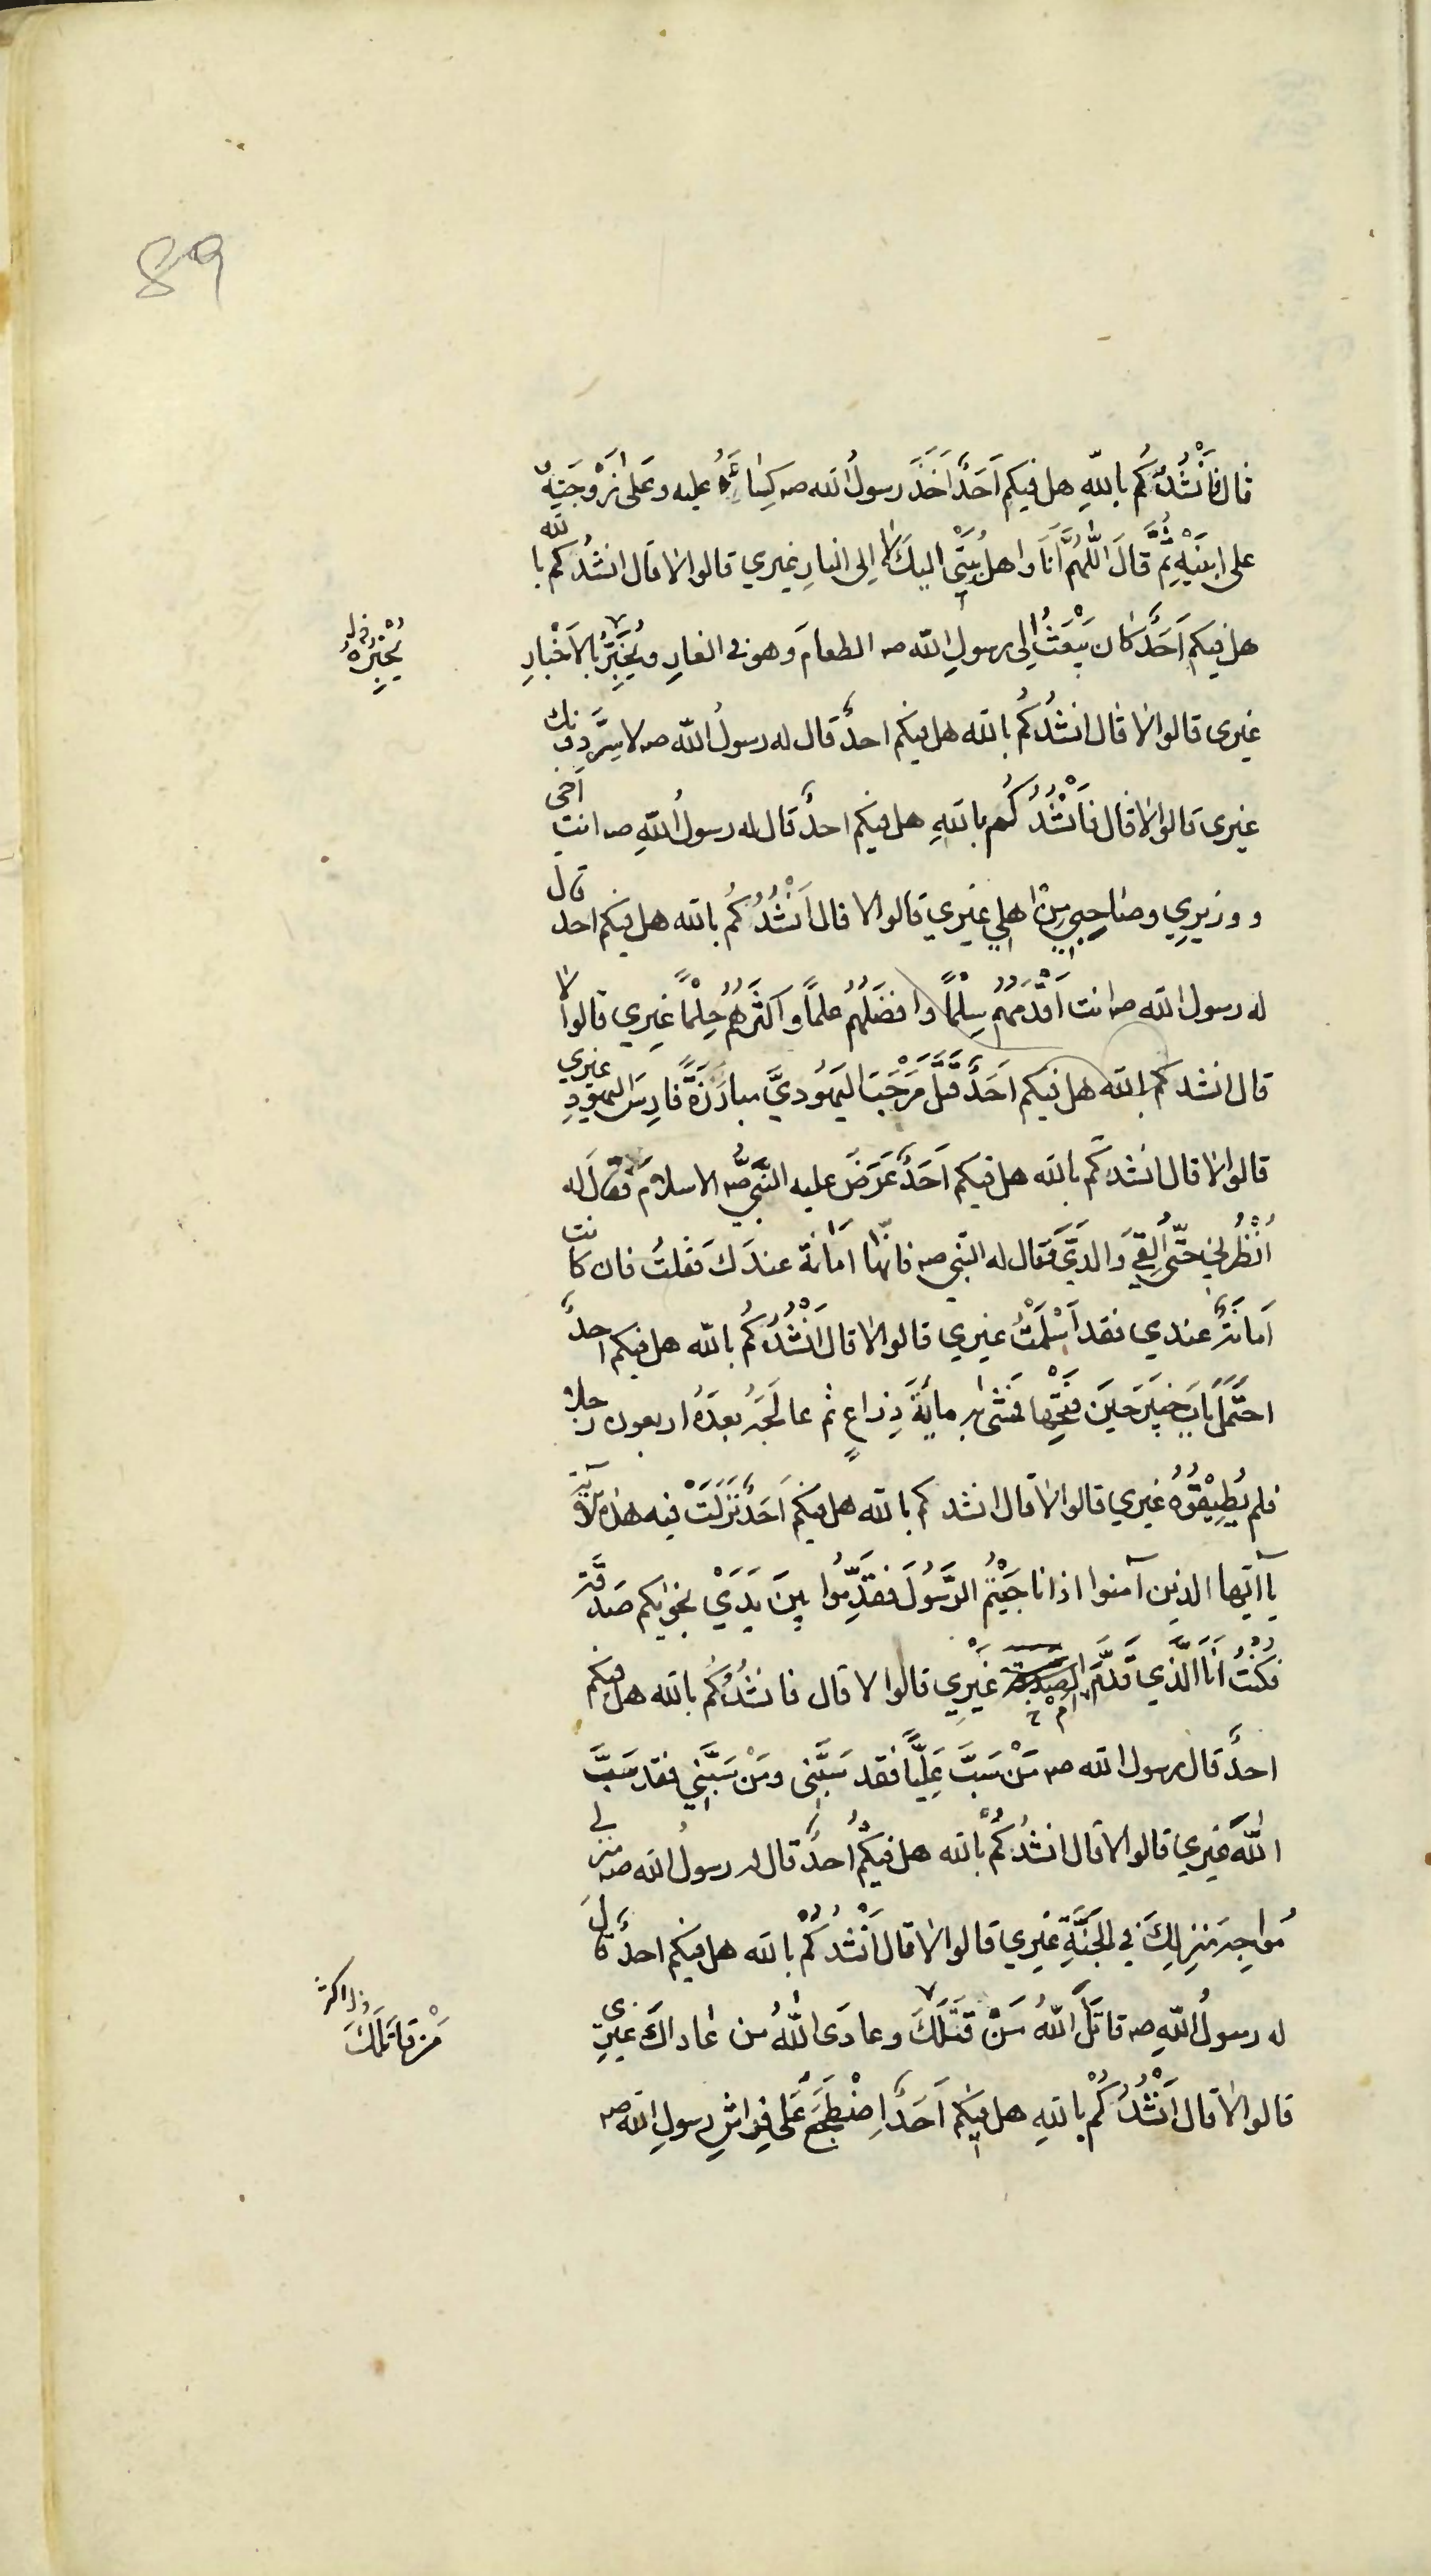 89
قال فَاَنْشُدُكُم باللهِ هل فيكم اَحَدٌ اَخَذَ رسولُ الله صـ كِسٰاءَهُ عليه وعَلى زَوْجَتِهِ و
على ابنَيْهِ ثُمَّ قالَ اللّٰهُمَّ اَنَا واهلُ بَيْتِى اليكَ لا اِلى النارِ غيري قالوا لا قال انشُدُكم بالله
هل فيكم اَحَدٌ كان يَبْعَثُ اِلى رسولِ الله صـ الطعامَ وهو فى الغارِ ويُخْبِرُ بالاَخْبارِ
يُخْبِرُهُ
غيرى قالوا لا قال انشُدُكُم بالله هل فيكم احدٌ قال له رسولُ الله صـ لا سِرَّ دونك
غيرى قالوا لا قال فَاَنْشُدُكُم باللهِ هل فيكم احدٌ قال له رسولُ اللهِ صـ انت اَخى
و وزيرِي وصٰاحِبِي مِنْ اهلي غيري قالوا لا قال اَنْشُدُكُم بالله هل فيكم احد قال
له رسول الله صـ انت اَقْدَمُهُم سِلْمًا وافضَلُهُم علمًا واَكثَرُهُم حِلْمًا غيري قالوا لا
قال انشدكم بالله هل فيكم اَحَدٌ قَتَلَ مَرْحَبَ اليَهُوديَّ مبارَزَةً فارِسَ اليهودِ غيري
قالوا لا قال انشدكم بالله هل فيكم اَحَدٌ عَرَضَ عليه النَّبِيُّ صـ الاسلامَ فقال له
اُنْظُرْني حتّٰى اَلقىٰ والدَيَّ فقال له النّبي صـ فانّها اَمٰانة عندَكَ فقلتُ فان كانت
اَمانَةً عندي فقد اَسْلَمْتُ غيري قالوا لا قال اَنْشُدُكُم بالله هل فيكم احدٌ
احتَمَلَ بابَ خيبَرَ حينَ فَتَحَها فَمَشٰى به مايَةَ ذِراعٍ ثم عالَجَهُ بعدَهُ اربعون رجلا
فلم يُطِيْقُوْهُ غيري قالوا لا قال انشدكم بالله هل فيكم اَحَدٌ نَزَلَتْ فيه هذه الآية
يا ايّها الذين آمنوا اذا ناجَيْتُمُ الرَّسُولَ فقَدِّمُوا بينَ يَدَيْ نجوٰيكم صَدقَةً
فكُنْتُ اَنَا الَّذي قَدَّمَ الصدقة غَيْرِي قالوا لا قال فانشُدُكُم بالله هل فيكم
احدٌ قال رسول الله صـ مَنْ سَبَّ عَلِيًّا فقد سَبَّنِى ومَنْ سَبَّنِي فقد سَبَّ
اللّٰهَ غيري قالوا لا قال انشُدُكُمْ بالله هل فيكُمْ احدٌ قال له رسولُ الله صـ منزلي
مُواجِهَ منزِلِكَ في الجَنَّةِ غيري قالوا لا قال اَنْشُدُكُمْ بالله هل فيكم احدٌ قالَ
له رسولُ اللهِ صـ قاتَلَ اللّٰهُ مَنْ قَتَلَكَ وعادَى اللّٰهُ من عٰاداكَ غيري
مَنْ قاتَلَكَ
قالوا لا قال اَنْشُدُكُمْ باللهِ هل فيكم اَحَدٌ اِضْطَجَعَ عَلى فِراشِ رسولِ الله صـ